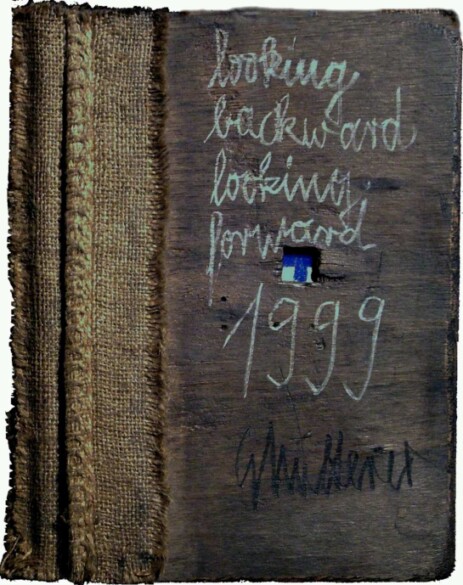 looking
backward
looking
forward
1999